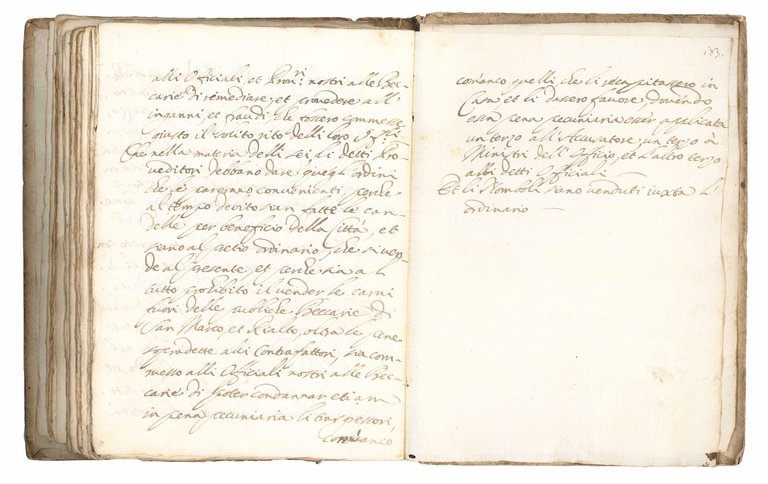 alli Officiali et Prov.ri nostri alle Bec-
carie di remediare, et provedere all'
inganni et fraudi che fossero commesse
giusto il solito rito delli loro
Che nella materia delli sei li detti Pro-
veditori debbano dare quegl'ordini
che gli pareranno convenienti, perche
al tempo debito sian fatte le can-
delle per beneficio della Città, et
siano al pretio ordinario che si ven-
de al presente, et perche sia al
tutto prohibito il vender le carni
fuori delle publiche Beccarie di
San Marco, et Rialto, oltra le pene
sopradette alli Contrafattori, sia com-
messo alli Officiali nostri alle Bec-
carie di poter condannar etiam
in pena pecuniaria li trasgressori
com'anco
183.
com'anco quelli che li recapitassero in
Casa et li dassero favore, dovendo
essa pena pecuniaria esser applicata
un terzo all'Accusatore, un terzo à
Ministri dell'Officio, et l'altro terzo
alli detti Officiali
Et li Stomboli siano venduti iuxta l'
ordinario